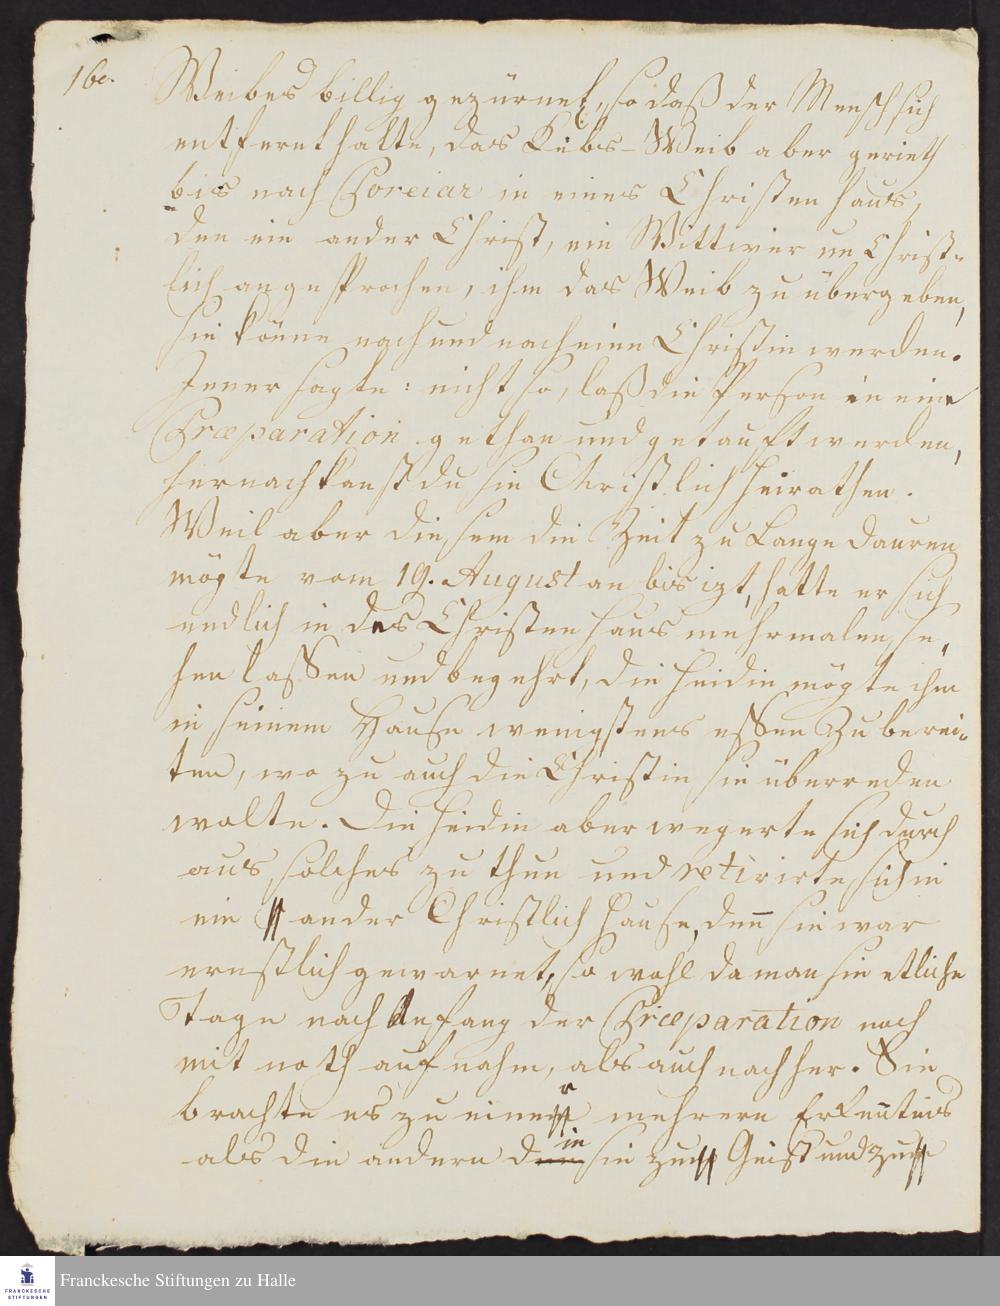 16c.
Weibes billig gezürnet, so daß der Mensch sich
entfernt halte, das Kebs-Weib aber gerieth
bis nach Poreiar in eines Christen haus,
den ein ander Christ, ein Wittwer un Christ-
lich angesprochen, ihm das Weib zu übergeben,
sie könne nach und nach eine Christin werden.
Jener sagte: nicht so, laß die Person in eine
Præparation gethan und getauft werden,
hernach kanst du sie Christlich heirathen.
Weil aber diesem die Zeit zu Lange dauren
mögte vom 19. August an bis izt, hatte er sich
endlich in des Christen haus mehrmalen se-
hen lassen und begehrt, die heidin mögte ihm
in seinem Hause wenigstens essen Zu berei-
ten, wo zu auch die Christin sie überreden
wolte. Die heidin aber wegerte sich durch
aus, solches zu thun und retirirte sich in
ein ander Christlich hause, den sie war
ernstlich gewarnet, so wohl da man sie etliche
Tage nach Anfang der Præparation noch
mit noth auf nahm, als auch nach her. Sie
brachte es zu einer mehrern Erkentnis
als die andern die sie zu Geist und zu
Franckesche Stiftungen zu Halle
FRANCKESCHE
STIFTUNGEN